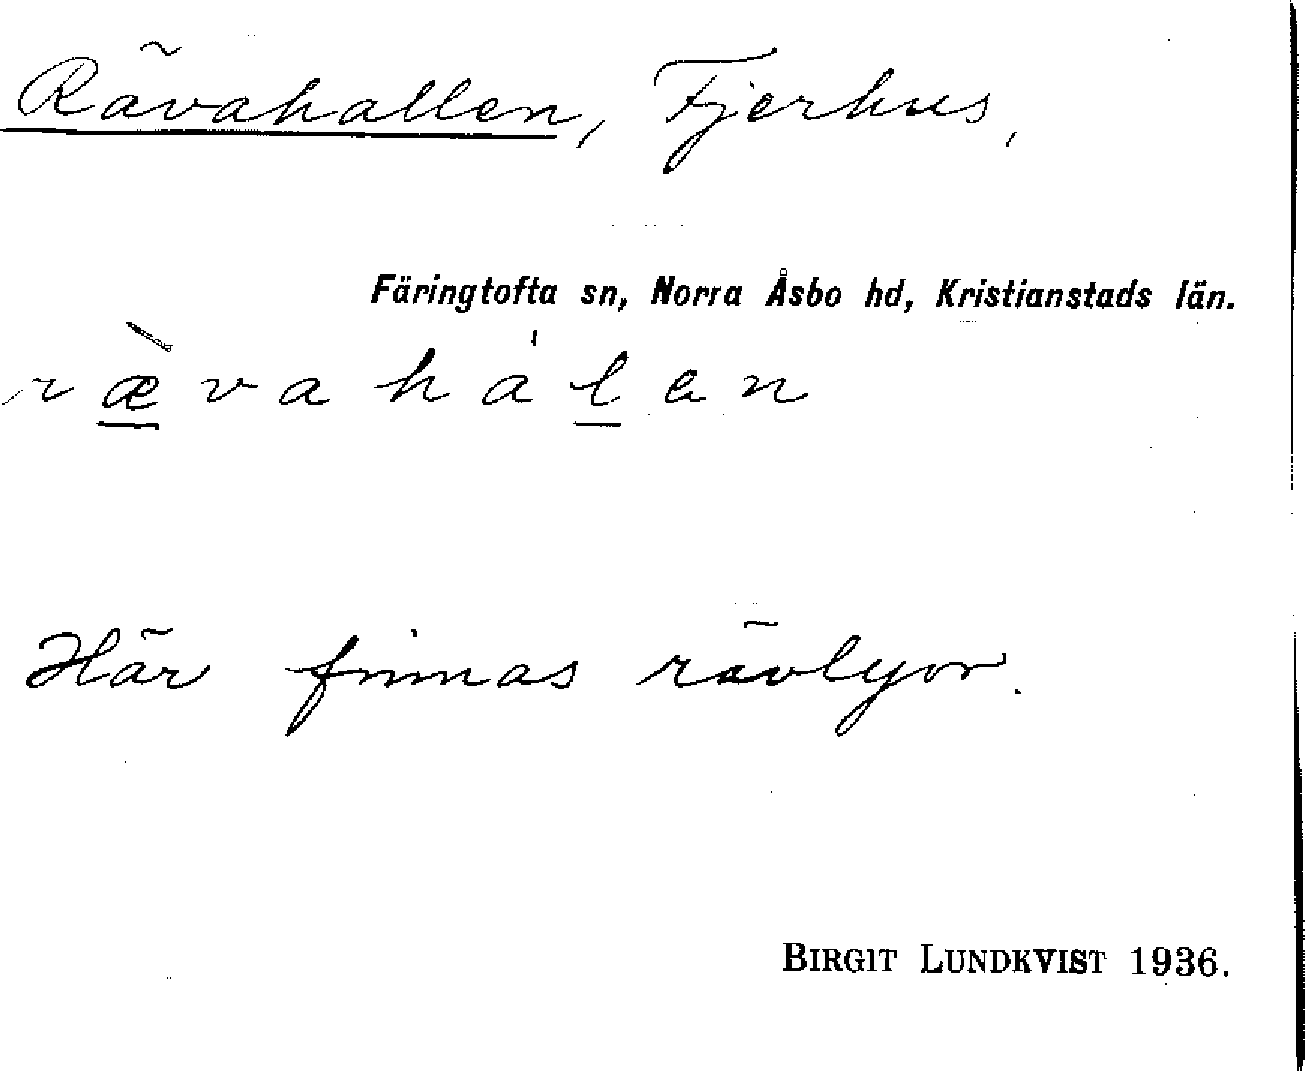 Rävahallen, Fjerhus,
Färingtofta sn, Norra Åsbo hd, Kristianstads län.
ræ̀vahálen
Här finnas rävlyor.
BIRGIT LUNDKVIST 1936.